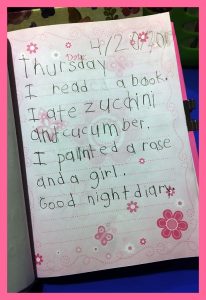 Thursday
I read a book.
I ate zucchini
and cucumber.
I painted a rose
and a girl.
Good night diary